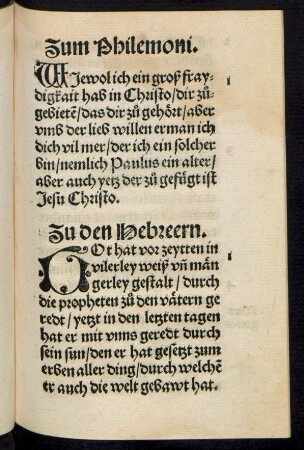 Zum Philemoni.
WJewol ich ein groß fray-
digkait hab in Christo/dir zů-
gebietē/das dir zů gehört/aber
vmb der lieb willen erman ich
dich vil mer/der ich ein solcher
bin/nemlich Paulus ein alter/
aber auch yetz der zů gefůgt ist
Jesu Christo.
1
Zu den Hebreern.
GOt hat vor zeytten in
vilerley weiß vñ män
gerley gestalt/durch
die propheten zů den vätern ge
redt/yetzt in den letzten tagen
hat er mit vnns geredt durch
sein sun/den er hat gesetzt zum
erben aller ding/durch welchē
er auch die welt gebawt hat.
1